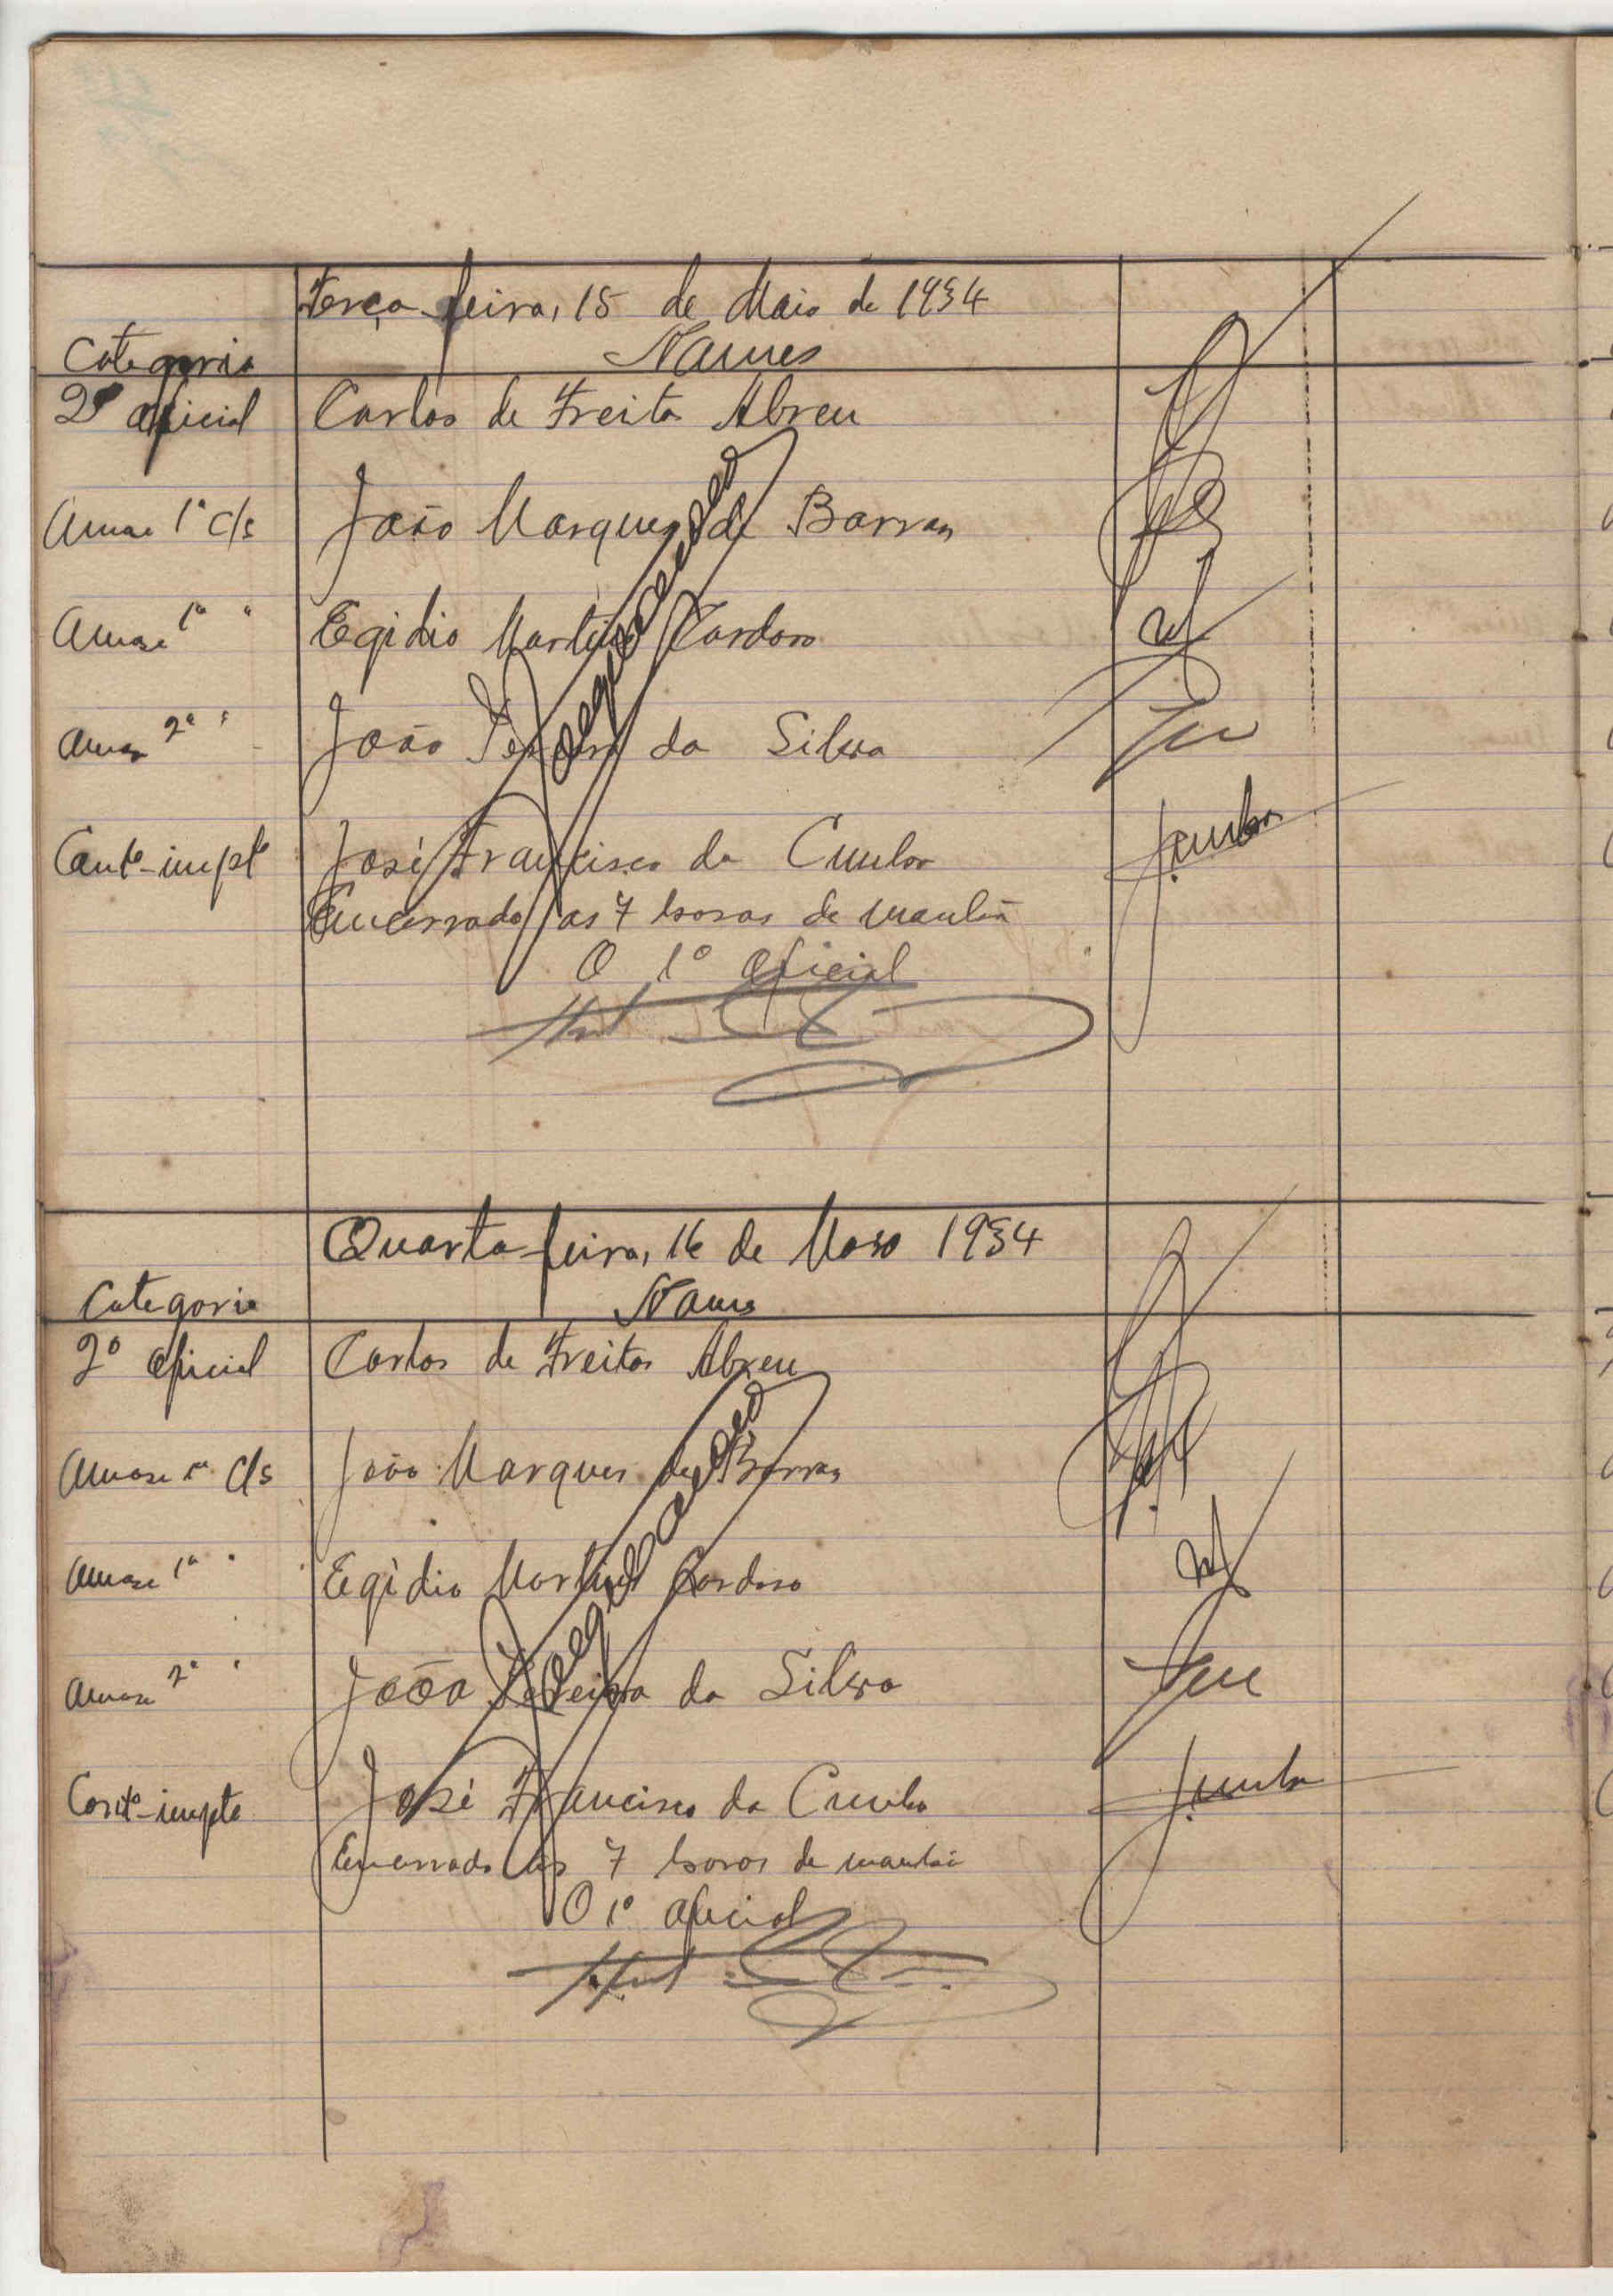 Terça-feira, 15 de Maio de 1934
Categoria Nomes
2º oficial Carlos de Freitas Abreu
Amase 1ª cls João Marques de Barros
Amase 1ª " Egidio Martins Cardoso
Amase 2ª " João Pereira da Silva
Contº-impte José Francisco da Cunha
Encerrado as 7 horas da manhã
O 1º oficial
Quarta-feira, 16 de Maio 1934
Categoria Nomes
2º oficial Carlos de Freitas Abreu
Amase 1ª cls João Marques de Barros
Amase 1ª " Egídio Martins Cardoso
Amase 2ª " João Pereira da Silva
Contº-impte José Francisco da Cunha
Encerrado as 7 horas da manhã
O 1º oficial